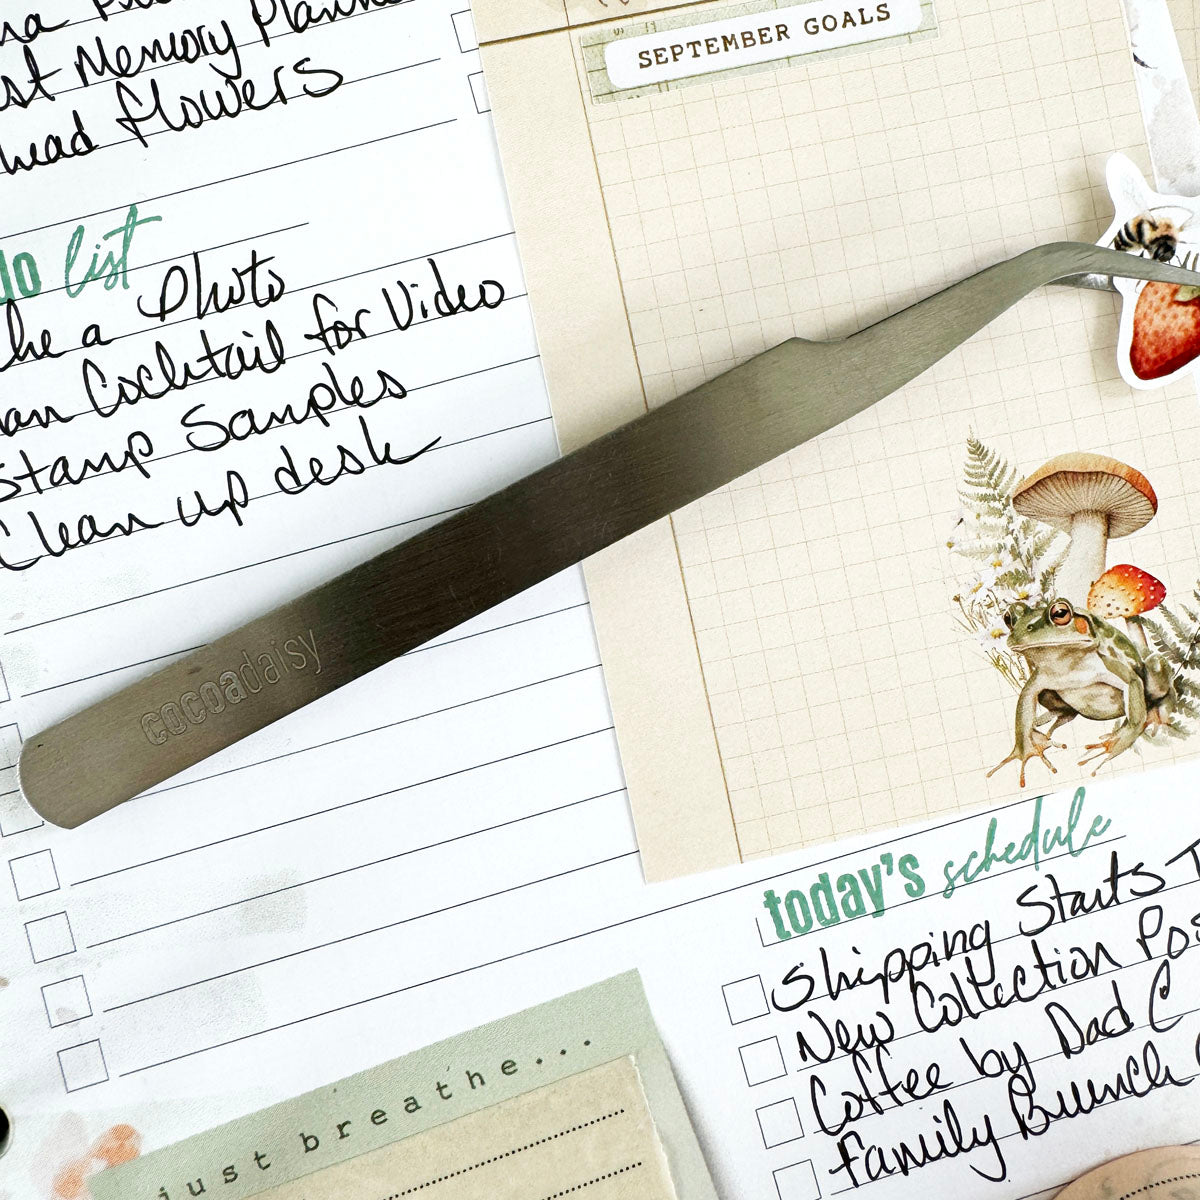 st Memory Planne
head flowers
do list
ke a Photo
an Cocktail for Video
Stamp Samples
Clean up desk
SEPTEMBER GOALS
cocoadaisy
today's schedule
Shipping Starts T
New Collection Pos
Coffee by Dad C
Family Brunch
just breathe...